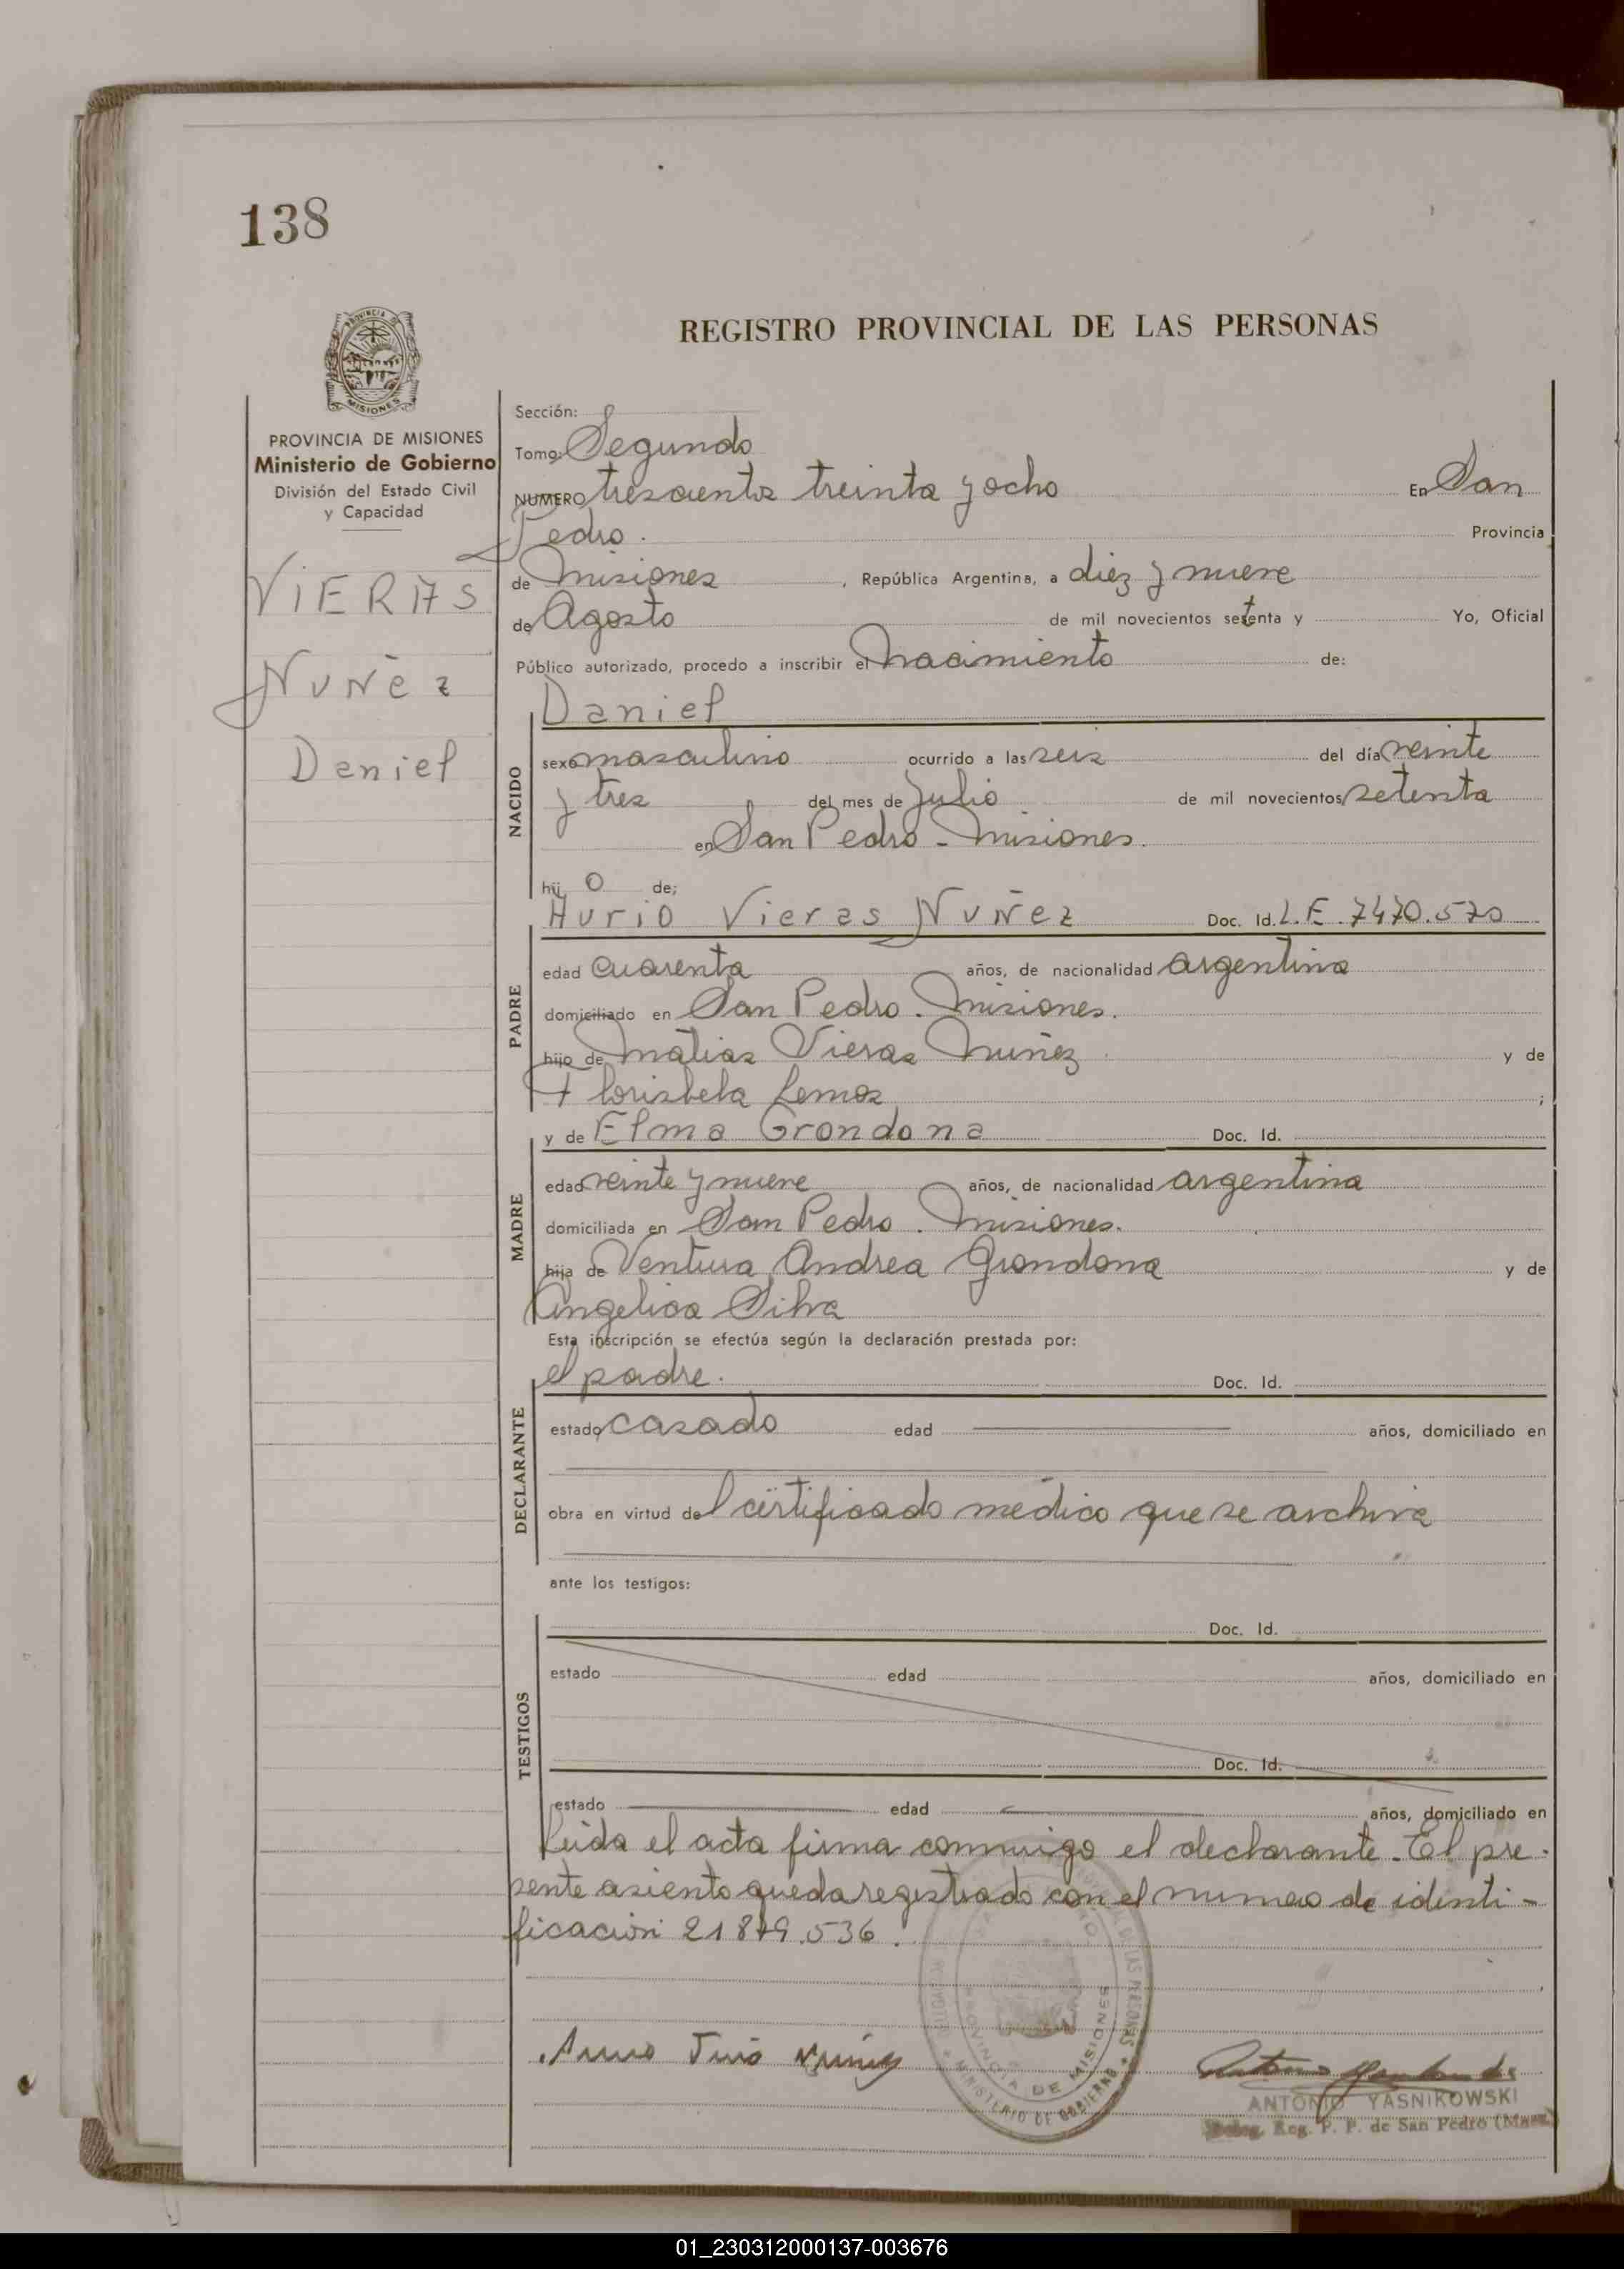 138
REGISTRO PROVINCIAL DE LAS PERSONAS
PROVINCIA DE MISIONES
Ministerio de Gobierno
División del Estado Civil
y Capacidad
VIERAS
NUÑEZ
Daniel
Sección:
Tomo: Segundo
NUMERO trescientos treinta y ocho En San
Pedro. Provincia
de Misiones, República Argentina, a diez y nueve
de Agosto de mil novecientos setenta y Yo, Oficial
Público autorizado, procedo a inscribir el nacimiento de:
Daniel
NACIDO
sexo masculino ocurrido a las seis del día veinte
y tres del mes de Julio de mil novecientos setenta
en San Pedro - Misiones.
hij o de;
Vieras Nuñez Doc. Id. L.E. 7470.570
PADRE
edad cuarenta años, de nacionalidad argentina
domiciliado en San Pedro. Misiones.
hijo de Matias Vieras Nuñez y de
Florisbela Lemos ;
y de Elma Grondona Doc. Id.
MADRE
edad veinte y nueve años, de nacionalidad argentina
domiciliada en San Pedro. Misiones.
hija de Ventura Andrea Grondona y de
Angelica Silva
Esta inscripción se efectúa según la declaración prestada por:
el padre. Doc. Id.
DECLARANTE
estado casado edad años, domiciliado en
obra en virtud del certificado médico que se archiva
ante los testigos:
Doc. Id.
TESTIGOS
estado edad años, domiciliado en
Doc. Id.
estado edad años, domiciliado en
Leida el acta firma conmigo el declarante. El pre-
sente asiento queda registrado con el numero de identi-
ficación 21.879.536.
PROVINCIA DE MISIONES
MINISTERIO DE GOBIERNO
ANTONIO YASNIKOWSKI
Deleg. Reg. P. P. de San Pedro (Mnes.)
01_230312000137-003676